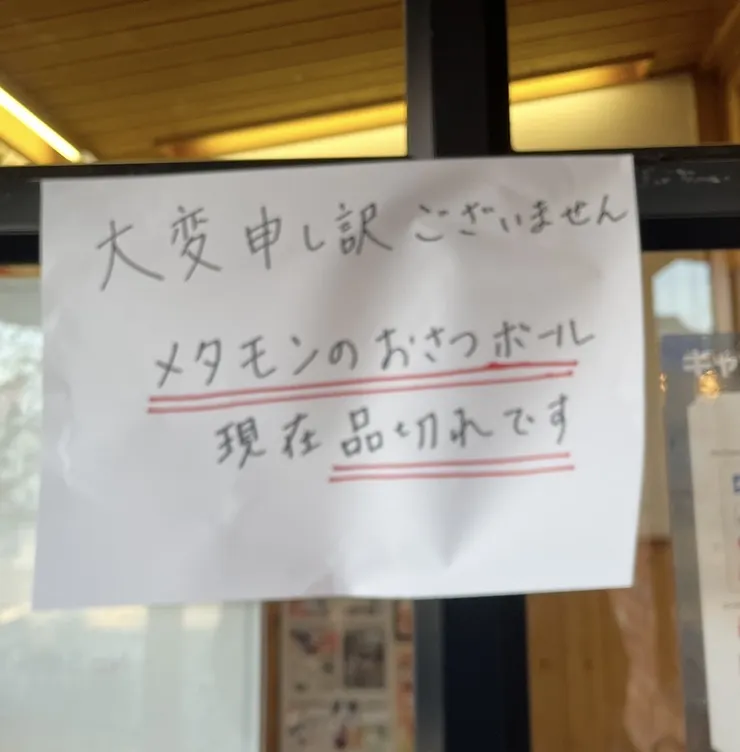 大変申し訳ございません
メタモンのおさつボール
現在品切れです
ギャ